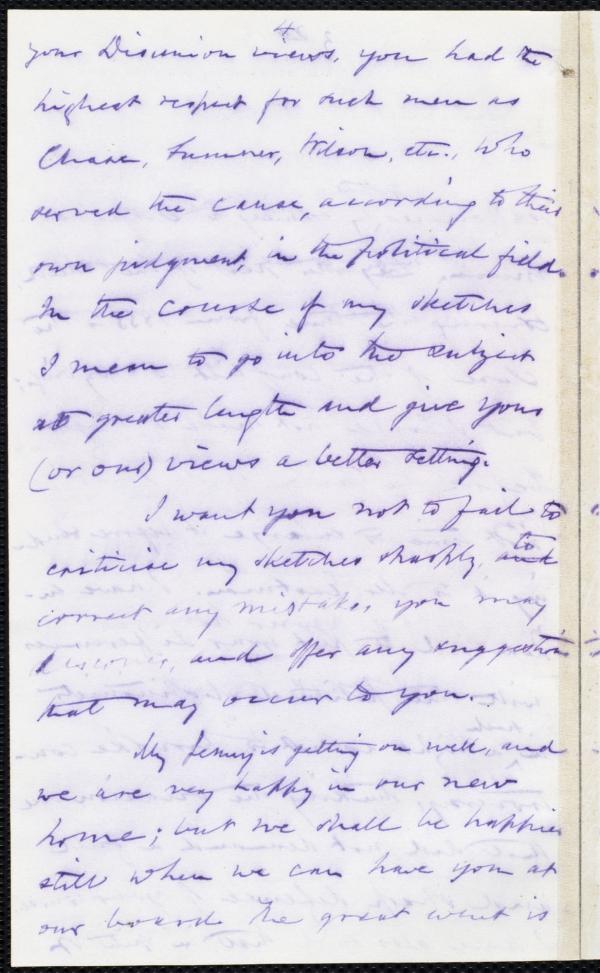 4
your Disunion views, you had the
highest respect for such men as
Chase, Sumner, Wilson, etc., who
served the cause, according to their
own judgment, in the political field.
In the course of my sketches
I mean to go into the subject
at greater length and give your
(or our) views a better setting.
I want you not to fail to
criticise my sketches sharply, and to
correct any mistakes, you may
discover, and offer any suggestion
that may occur to you.
My family is getting on well, and
we are very happy in our new
home; but we shall be happier
still when we can have you at
our board. The great want is